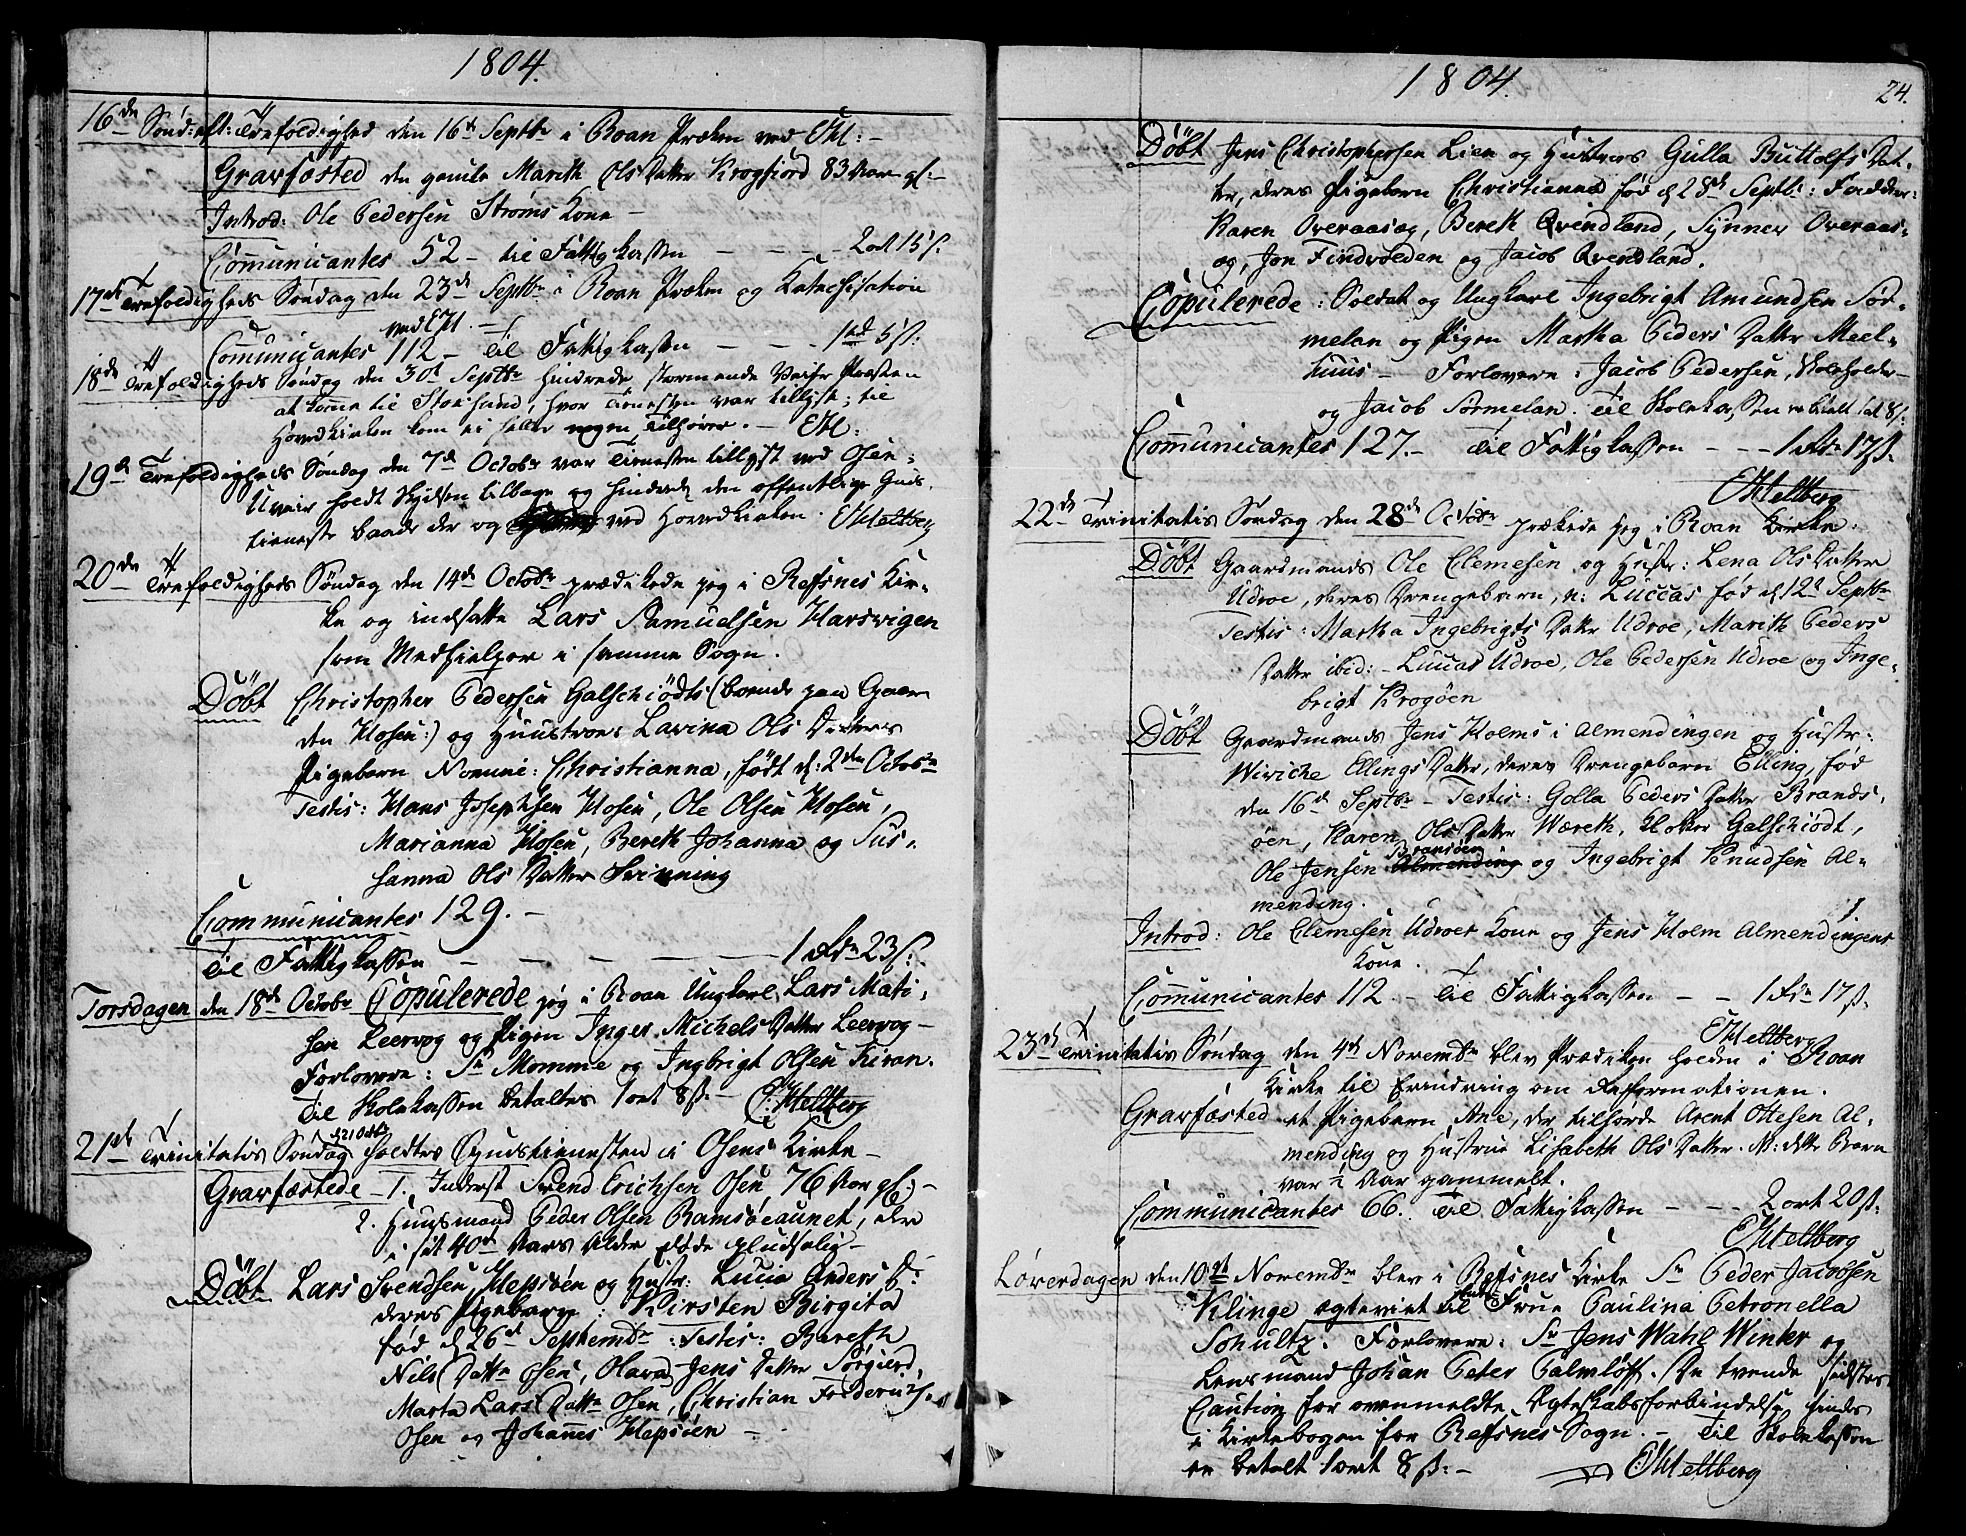 1804.
16de Sønd: eft: Trefoldighed den 16d Septbr i Roan Præken ved EM: -
Gravfæsted den gamle Marith OlsDatter Krogfiord 83 Aar gl: -
Introd: Ole Pedersen Strøms Kone -
Communicantes 52 - til Fattigkassen - - - 2 ort 15 s:
17de Trefoldigheds Søndag den 23de Septbr i Roan Præken og Katechisation
ved EM. -
Communicantes 112 - Til Fattigkassen - - - 1 5 s:
18de Trefoldigheds Søndag den 30d Septbr hindrede stormende Veir Præsten
at komme til Stoksund, hvor Tienesten var tillyst; til
Hovedkirken kom ei heller nogen Tilhører. - EM:
19de Trefoldigheds Søndag den 7de Octobr var Tienesten tillyst ved Osen;
Uveir holdt Skydsen tilbage og hindrede den offentlige Guds-
tieneste baade der og ved Hovedkirken. EMeltberg
20de Trefoldigheds Søndag den 14de Octobr prædikede jeg i Refsnes Kir-
ke og indsatte Lars Samuelsen Harsvigen
som Medhielper i samme Sogn.
Döbt Christopher Pedersen Galschiödts (boende paa Gaar-
den Hosen:) og Huustroes Lavina Ols Datters
Pigebarn Nomine: Christianna, født d: 2den Octobr
Testis: Hans Josephsen Hosen, Ole Olsen Hosen,
Marianna Hosen, Bereth Johanna og Sus-
sanna Ols Datter Svining
Communicantes 129. -
Til Fattigkassen - - - - - 1 Rdr 23 s:
Torsdagen den 18de Octobr Copulerede jeg i Roan Ungkarl Lars Mati-
sen Leervog og Pigen Inger Michels Datter Leervog -
Forlovere: Sr Momme og Ingbrigt Olsen Kiran.
Til Skolekassen betaltes 1 ort 8 s. - EMeltberg
21de Trinitatis Søndag d 21 Octbr holdtes Gudstienesten i Osens Kirke -
Gravfæstede - 1. Inderst Svend Erichsen Osen, 76 Aar gl: -
2. Huusmand Peder Olsen Ramsøeaunet, der
i sit 40de Aars Alder døde pludselig -
Döbt Lars Svendsen Hepsöen og Hustr: Lucia Anders D:
deres Pigebarn: Kirsten Birgita
fød d 26d Septembr: Testis: Bereth
Nils Dattr Osen, Olava Jens Datter Sørgierd,
Marta Lars Dattr Osen, Christian Frederichs.
Osen og Johannes Hepsöen -
1804.
24.
Döbt Jens Christophersen Lien og Hustrues Gulla Buttolfs Dat-
ter, deres Pigebarn Christianna fød d 28d Septbr: Faddere:
Karen Overaasæg, Bereth Qvendland, Synnev Overaas-
æg, Jon Findvolden og Jacob Qvendland.
Copulerede: Soldat og Ungkarl Ingebrigt Amundsen Sör-
melan og Pigen Martha Peders Datter Meel-
huus - Forlovere: Jacob Pedersen, Skoleholder -
og Jacob Sormelan. Til Skolekassen er betalt 1 ort 8 s:
Communicantes 127. - Til Fattigkassen - - - 1 Rdr 17 s.
EMeltberg
22de Trinitatis Søndag den 28de Octobr prækede jeg i Roan Kirke.
Döbt Gaardmands Ole Clemesen og Hustr: Lena Ols Datter
Udroe, deres Drengebarn, n: Luccas fød d 12d Septbr
Testis: Martha Ingebrigts Datter Udroe, Marith Peders
Datter ibid: - Luccas Udroe, Ole Pedersen Udroe og Inge-
brigt Krogöen
Döbt Gaardmands Jens Holms i Almendingen og Hustr:
Wiviche Ellings Datter, deres Drengebarn Elling, fød
den 16d Septbr - Testis: Golla Peders Datter Brands-
öen, Karen Ols Datter Wæreth, Klokker Galschiödt,
Bransöen
Ole Jensen Almending og Ingebrigt Knudsen Al-
mending.
Introd: Ole Clemesen Udroes Kone og Jens Holm Almendingens
Kone.
Communicantes 112. - Til Fattigkassen - - 1 Rdr 17 s.
EMeltberg
23de Trinitatis Søndag den 4de Novembr blev Prædiken holden i Roan
Kirke til Erindring om Reformationen.
Gravfæsted et Pigebarn Ane, der tilhørde Arent Ottesen Al-
mending og Hustrue Lisabeth Ols Datter. N: dette Barn
var ½ Aar gammelt.
Communicantes 66. Til Fattigkassen - - - 2 ort 20 s.
EMeltberg
Løverdagen den 10de Novembr blev i Refsnes Kirke Sr Peder Jacobsen
Klinge ægteviet til Frue Paulina Petronella
Schultz. Forlovere: Sr Jens Wahl Winter og
Lensmand Johan Peter Palmlöff. De tvende sidstes
Caution for ovenmeldte Ægteskabsforbindelse findes
i Kirkebogen for Refsnes Sogn. - Til Skolekassen
er betalt 1 ort 8 s: - EMeltberg